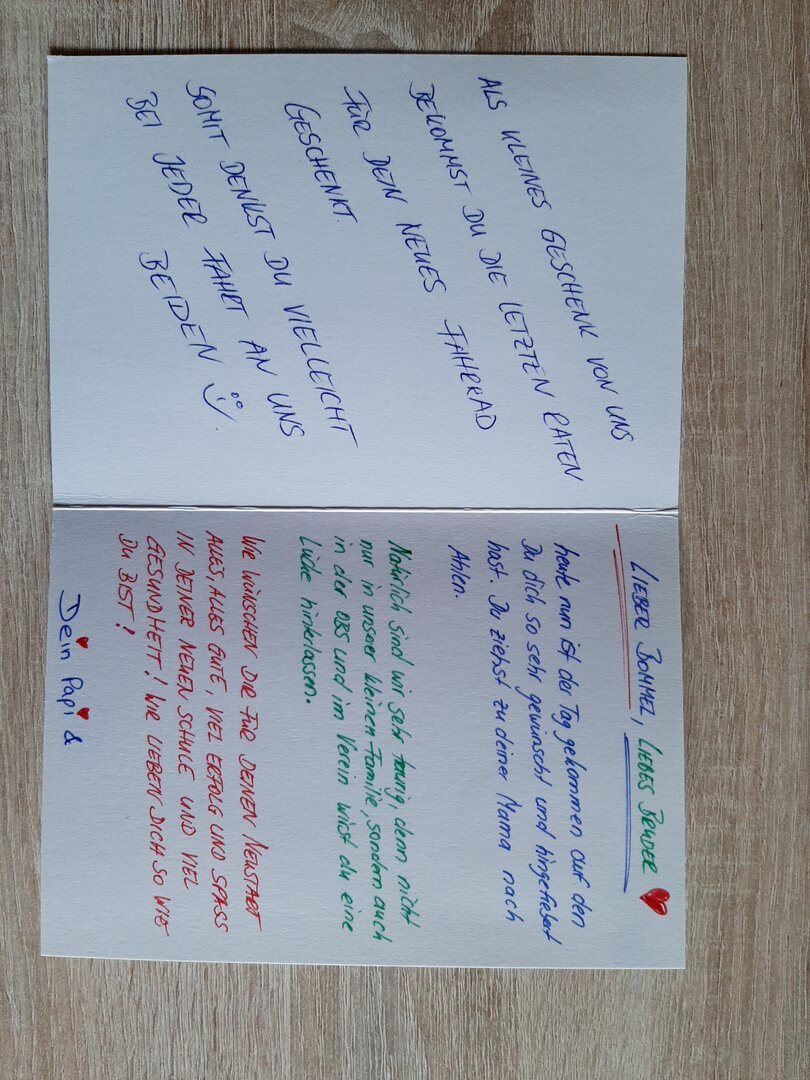 ALS KLEINES GESCHENK VON UNS
BEKOMMST DU DIE LETZTEN RATEN
FÜR DEIN NEUES FAHRRAD
GESCHENKT.
SOMIT DENKST DU VIELLEICHT
BEI JEDER FAHRT AN UNS
BEIDEN
LIEBER BOMMEL, LIEBES BRUDER
heute nun ist der Tag gekommen auf den
Du dich so sehr gewünscht und hingefiebert
hast. Du ziehst zu deiner Mama nach
Ahlen.
Natürlich sind wir sehr traurig, denn nicht
nur in unserer kleinen Familie, sondern auch
in der OBS und im Verein wirst du eine
Lücke hinterlassen.
WIR WÜNSCHEN DIR FÜR DEINEN NEUSTART
ALLES, ALLES GUTE, VIEL ERFOLG UND SPASS
IN DEINER NEUEN SCHULE UND VIEL
GESUNDHEIT! WIR LIEBEN DICH SO WIE
DU BIST!
Dein Papi &